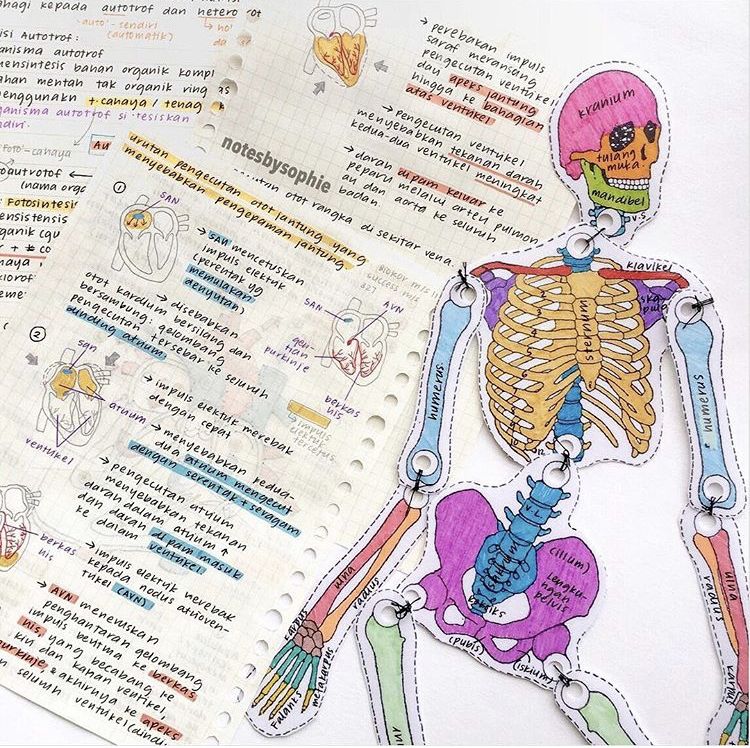 bahagi kepada autotrof dan heterotrof
'auto' - sendiri
(automatik)
isi Autotrof:
anisma autotrof
mensintesis bahan organik kompl
ahan mentah tak organik ringkas
enggunakn + cahaya / tenag
ganisma autotrof si-tesiskan
ndiri.
'foto' - cahaya
autotrof
(nama orga
Fotosintesis
→ perebakan impuls
saraf meransang
pengecutan ventrikel
dari apeks jantung
hingga ke bahagian
atas ventrikel
→ pengecutan ventrikel
menyebabkan tekanan darah
kedua-dua ventrikel meningkat
→ darah dipam keluar ke
peparu melalui arteri pulmon
ari dan aorta ke seluruh
badan.
notesbysophie
otot rangka di sekitar vena.
urutan pengecutan otot jantung yang
menyebabkan pengepaman jantung.
①
SAN
→ SAN mencetuskan
impuls elektrik
(perentak yg
memulakan
denyutan)
→ disebabkan
otot kardium bersilang dan
bersambung: gelombang
pengecutan tersebar ke seluruh
dinding atrium.
SAN
AVN
purkinje
berkas
his
②
SAN
atrium
ventrikel
→ impuls elektrik merebak
dengan cepat
→ menyebabkan kedua-
dua atrium mengecut
dengan serentak + seragam
→ pengecutan atrium
menyebabkan tekanan
darah dalam atrium ↑
dan darah dipam masuk
ke dalam ventrikel.
berkas
his
→ impuls elektrik merebak
kepada nodus atrioven-
trikel (AVN)
→ AVN meneruskan
penghantaran gelombang
impuls bermula ke berkas
his yang becabang ke
kiri dan kanan ventrikel,
purkinje, & akhirnya ke apeks
seluruh ventrikel (dindi
kranium
tulang
muka.
mandibel
V.S.
klavikel
ska-
pula
sternum
1
2
3
humerus
humerus
ulna
radius
karpus
metakarpus
falanks
V.L.
sakrum
koksiks
(ilium)
Lengku-
ngan
pelvis
(pubis)
(iskium)
ulna
radius
karpus